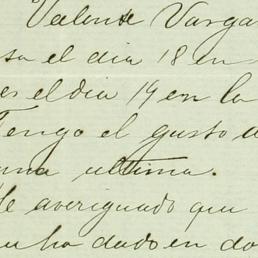 Valente Varga
sa el dia 18 en
es el dia 19 en la
Tengo el gusto d
una ultima.
He averiguado que
ha dado en do